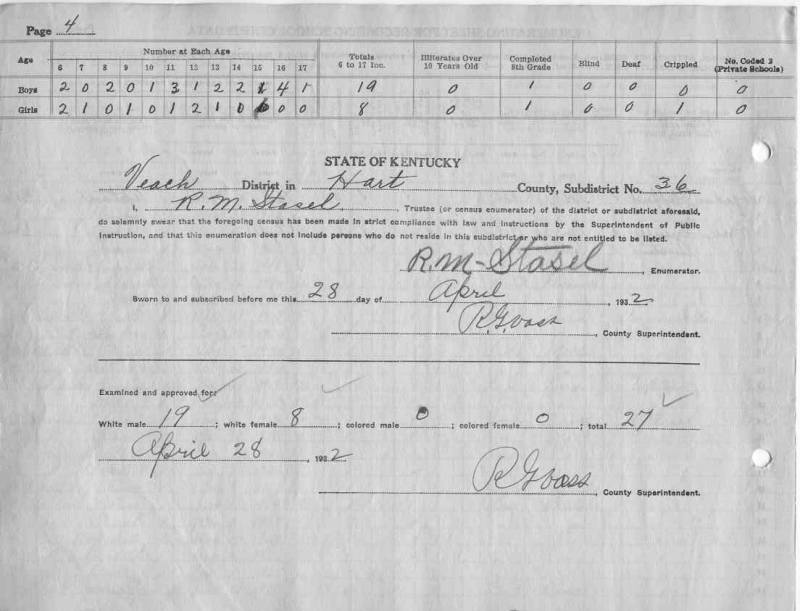 Page 4
Age Number at Each Age Totals 6 to 17 Inc. Illiterates Over 10 Years Old Completed 8th Grade Blind Deaf Crippled No. Coded 2 (Private Schools)
6 7 8 9 10 11 12 13 14 15 16 17
Boys 2 0 2 0 1 3 1 2 2 1 4 1 19 0 1 0 0 0 0
Girls 2 1 0 1 0 1 2 1 0 0 0 0 8 0 1 0 0 1 0
STATE OF KENTUCKY
Veach District in Hart County, Subdistrict No. 36
I, R. M. Stasel Trustee (or census enumerator) of the district or subdistrict aforesaid,
do solemnly swear that the foregoing census has been made in strict compliance with law and instructions by the Superintendent of Public
Instruction, and that this enumeration does not include persons who do not reside in this subdistrict or who are not entitled to be listed.
R. M. Stasel, Enumerator.
Sworn to and subscribed before me this 28 day of April, 1932
R. G. Vass, County Superintendent.
Examined and approved for:
White male 19; white female 8; colored male 0; colored female 0; total 27
April 28, 1932
R G Vass, County Superintendent.